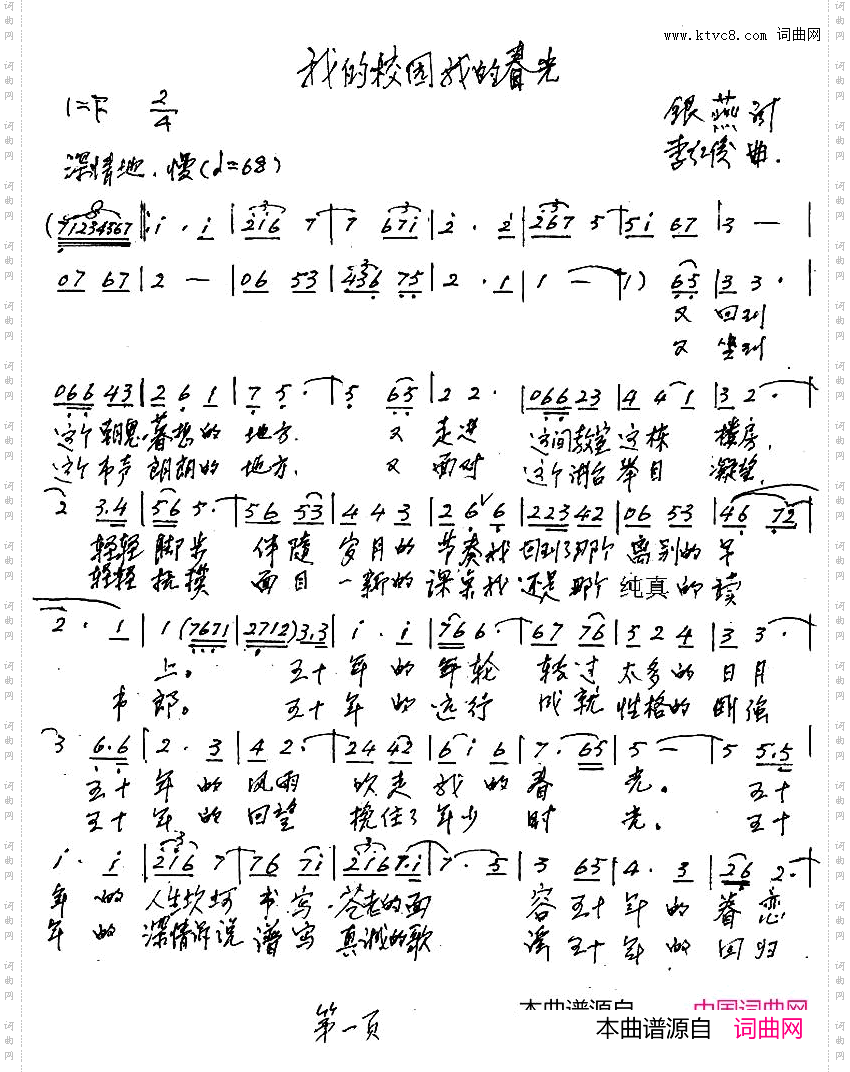 www.ktvc8.com 词曲网
我的校园我的春光
1=F 2/4
银燕 词
李红俊 曲.
深情地.慢(♩=68)
(71234567 ‖: i . i | 2i6 7 | 7 67i | 2 . 2 | 267 5 | 5i 67 | 3 — |
07 67 | 2 — | 06 53 | 436 75 | 2 . 1 | 1 — | 1) 65 | 3 3 . |
又 回到
又 坐到
066 43 | 2 6 1 | 7 5 . | 5 65 | 2 2 . | 066 23 | 4 4 1 | 3 2 . |
这个 朝思暮想的 地方. 又 走进 这间教室 这栋 楼房.
这个 书声 朗朗的 地方. 又 面对 这个讲台 举目 凝望.
2 3.4 | 56 5 . | 56 53 | 4 4 3 | 2 6 6 | 223 42 | 06 53 | 46 72 |
轻轻 脚步 伴随 岁月的 节奏我 回到了那个 离别的 早
轻轻 抚摸 面目 一新的 课桌我 还是 那个 纯真 的 读
2 . 1 | 1 (7671 | 2712) 3.3 | i . i | 766 . | 67 76 | 5 2 4 | 3 3 . |
上。 五十 年 的 年轮 转过 太多的 日月
书 郎。 五十 年 的 远行 成就 性格的 刚强
3 6.6 | 2 . 3 | 4 2 . | 24 42 | 6 i 6 | 7 . 65 | 5 — | 5 5.5 |
五十 年 的 风雨 吹走 我 的 春 光。 五十
五十 年 的 回望 挽住了 年少 时 光。 五十
i . i | 2i6 7 | 76 7i | 2i6 7.i | 7 . 5 | 3 65 | 4 . 3 | 26 2 . |
年 的 人生坎坷 书写 苍老的面 容 五十 年 的 眷恋
年 的 深情诉说 谱写 真诚的歌 谣 五十 年 的 回归
第一页
本曲谱源自 中国词曲网
本曲谱源自 词曲网